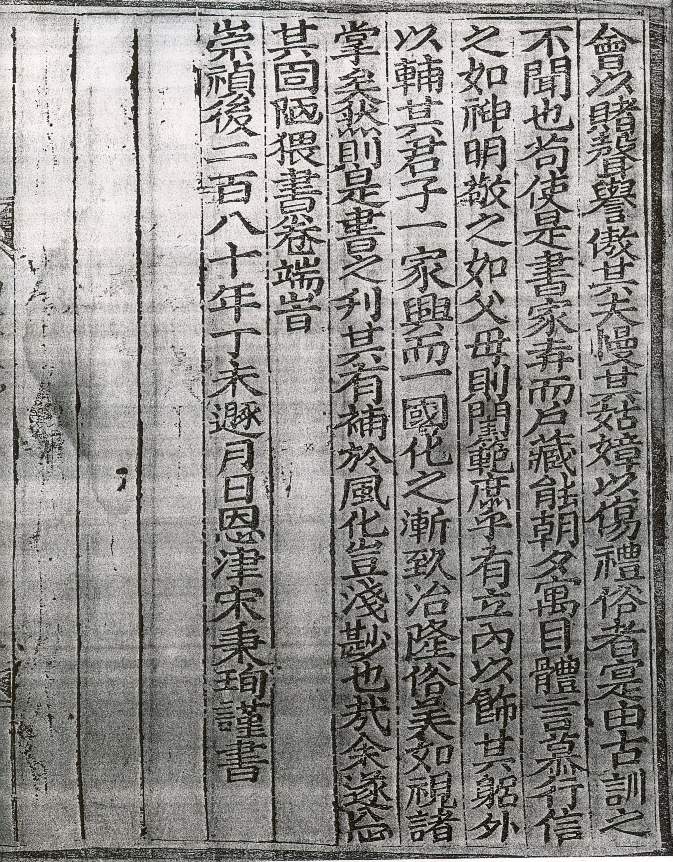 會以賭聲譽傲其夫慢其姑嫜以傷禮俗者寔由古訓之
不聞也苟使是書家弆而戶藏能朝夕寓目體言慕行信
之如神明敬之如父母則閨範庶乎有立內以飾其躬外
以輔其君子一家興而一國化之漸致治隆俗美如視諸
掌矣然則是書之刊其有補於風化豈淺尠也哉余遂忘
其固陋猥書卷端旹
崇禎後二百八十年丁未遯月日恩津宋秉珣謹書